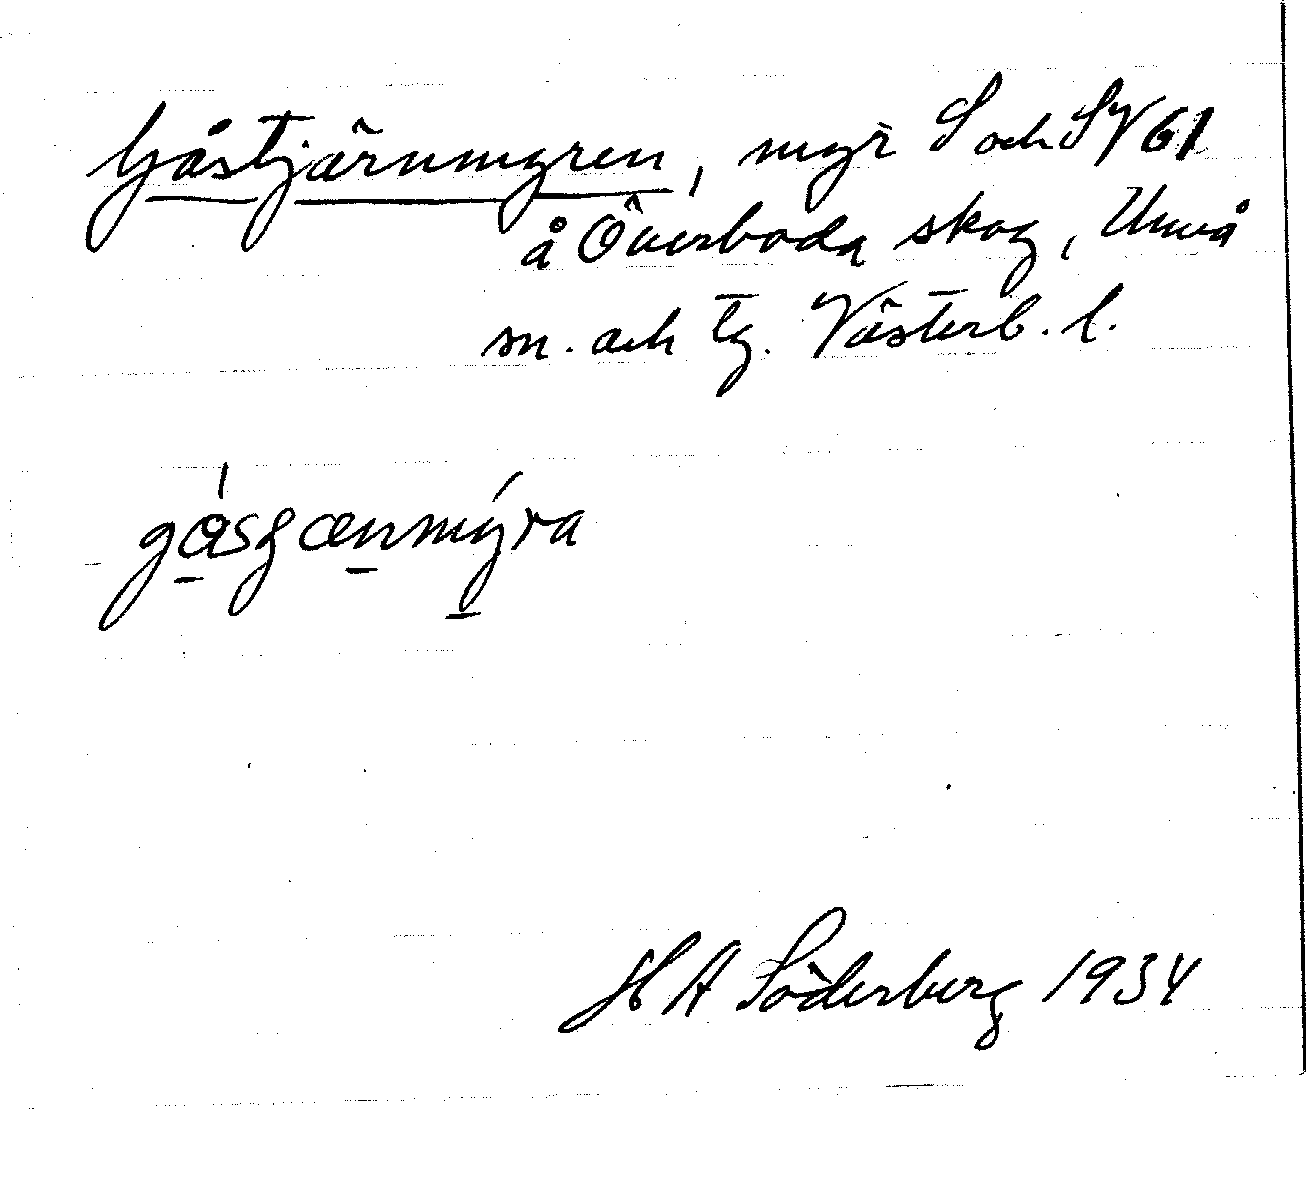 Gåstjärnmyren, myr S och SV 61
å Överboda skog, Umeå
sn. och tg. Västerb. l.
gåsʂænmýra
H A Söderberg 1934